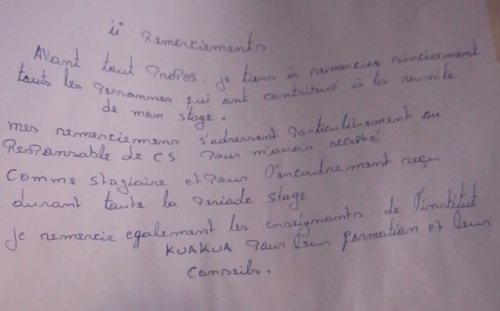 ii Remerciements
Avant tout Propos. je tiens à remercies sincirement
touts les Personnes qui ont contribué à la reussite
de mon stage.
mes remerciemens s'adressent Particulièrement au
Responsable de CS Pour m'avais accepté
Comme stagiaire et Pour l'encadrement reçu
durant toute la Periode stage
je remercie egalement les enseignants de l'institut
KUAKUA Pour leur formation et leur
Conseils.